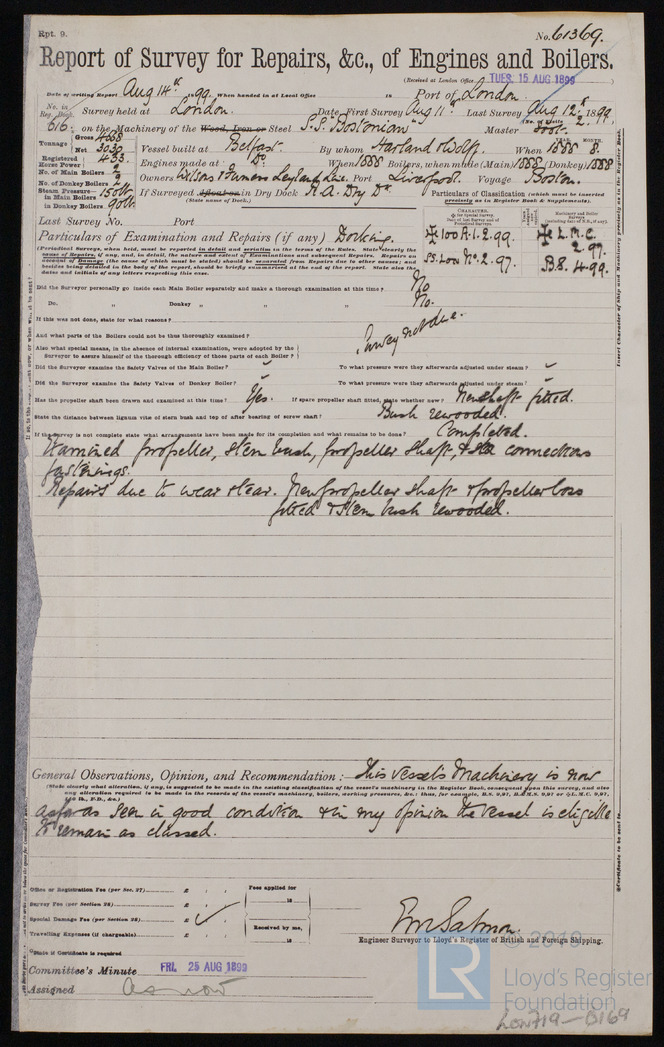 Rpt. 9.
No. 61369.
Report of Survey for Repairs, &c., of Engines and Boilers.
(Received at London Office TUES. 15 AUG 1899
Date of writing Report Aug 14th 1899 When handed in at Local Office 18 Port of London
No. in Reg. Book. Survey held at London. Date, First Survey Aug 11th Last Survey Aug 12th 1899
(No. of Visits 2.)
616. on the Machinery of the Wood, Iron or Steel S.S. Bostonian Master
Tonnage Gross 4668 Vessel built at Belfast By whom Harland & Wolff. When 1888 YEAR. MONTH. 8.
Net 3030
Registered Horse Power 453. Engines made at Do. When 1888 Boilers, when made (Main) 1888 (Donkey) 1888
No. of Main Boilers
No. of Donkey Boilers Owners Wilsons & Furness Leyland Line. Port Liverpool. Voyage Boston.
Steam Pressure— in Main Boilers 150 lb. If Surveyed Afloat or in Dry Dock R.A. Dry Dk
in Donkey Boilers 90 lb. (State name of Dock.)
Particulars of Classification (which must be inserted precisely as in Register Book & Supplements).
Last Survey No. Port
CHARACTER.
✠ 100 A.1. 2.99.
SS. Lon No. 2. 97.
Machinery and Boiler Surveys
✠ L.M.C. 2.97.
B.S. 4.99.
Particulars of Examination and Repairs (if any) Docking.
(Periodical Surveys, when held, must be reported in detail and seriatim in the terms of the Rules. State clearly the
name of Repairs, if any, and, in detail, the nature and extent of Examinations and subsequent Repairs. Repairs on
account of Damage (the cause of which must be stated) should be separated from Repairs due to other causes; and
besides being detailed in the body of the report, should be briefly summarised at the end of the report. State also the
dates and initials of any letters respecting this case.
Did the Surveyor personally go inside each Main Boiler separately and make a thorough examination at this time? No
Do. " Donkey " " " No.
If this was not done, state for what reasons?
And what parts of the Boilers could not be thoroughly examined? Survey not due.
Also what special means, in the absence of internal examination, were adopted by the
Surveyor to assure himself of the thorough efficiency of those parts of each Boiler?
Did the Surveyor examine the Safety Valves of the Main Boiler? To what pressure were they afterwards adjusted under steam?
Did the Surveyor examine the Safety Valves of Donkey Boiler? To what pressure were they afterwards adjusted under steam?
Has the propeller shaft been drawn and examined at this time? Yes. If spare propeller shaft fitted, state whether new? New shaft fitted.
State the distance between lignum vitæ of stern bush and top of after bearing of screw shaft? Bush rewooded.
If the survey is not complete state what arrangements have been made for its completion and what remains to be done? Completed.
Examined propeller, stern bush, propeller shaft, & sea connections
fastenings.
Repairs due to wear & tear. New propeller shaft & propeller boss
fitted & stern bush rewooded.
General Observations, Opinion, and Recommendation:— This vessel's Machinery is now
(State clearly what alteration, if any, is suggested to be made in the existing classification of the vessel's machinery in the Register Book, consequent upon this survey, and also
any alteration required to be made in the records of the vessel's machinery, boilers, working pressures, &c.: thus, for example, B.S. 9,97, B.&M.S. 9,97 or ✠L.M.C. 9,97,
140 lb., F.D., &c.)
as far as seen in good condition & in my opinion the vessel is eligible
to remain as classed.
Office or Registration Fee (per Sec. 27) £ : :
Survey Fee (per Section 28) £ : :
Special Damage Fee (per Section 28) £
Travelling Expenses (if chargeable) £ : :
Fees applied for
18
Received by me,
18
*State if Certificate is required
Engineer Surveyor to Lloyd's Register of British and Foreign Shipping.
Committee's Minute FRI. 25 AUG 1899
Assigned as now
© 2019
LR
Lloyd's Register
Foundation
LON719-0169